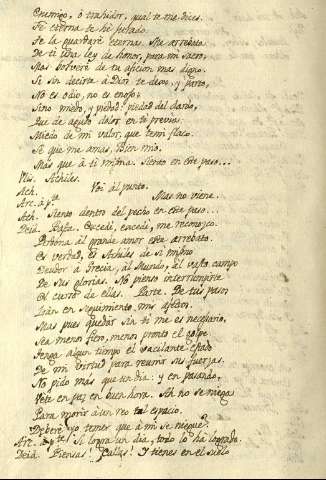 Enemigo, ó trahidor, qual te me dices.
Fé eterna te hé jurado.
Te la guardaré eterna. Me arrebata
De ti una ley de honor, para mi sacro,
Mas volveré de tu aficion mas digno.
Si sin decirte à Dios te dexo, y parto,
No es odio, no es enojo;
Sino miedo, y piedad: piedad del daño,
Que de agudo dolor en ti previas:
Miedo de mi valor, que temi flaco.
Sé que me amas, Bien mio.
Mas que à ti misma. Siento en este peso...
Ulis. Achiles.
Ach. Voi al punto.
Arc. à pte. Mas no viene.
Ach. Siento dentro del pecho en este peso...
Deid. Basta. Excedí, excedí, me reconozco.
Perdona al grande amor este arrebato.
Es verdad, es Achiles de sí mismo
Deudor a Grecia, al Mundo, al vasto campo
De sus glorias. No pienso interrumpirte
El curso de ellas. Parte. De tus pasos
Irán en seguimiento mis afectos.
Mas pues quedar sin ti me es necesario,
Sea menos fiero, menos pronto el golpe
Tenga algun tiempo el vacilante estado
De mi virtud para reunir sus fuerzas.
No pido más que un dia: y en pasando,
Vete en paz en buen hora. Ah no se niega
Para morir à un reo tal espacio.
Deberé yo temer que à mi se niegue?
Arc. à pte. Si logra un dia, todo lo ha logrado.
Deid. Piensas! Callas! Y tienes en el suelo